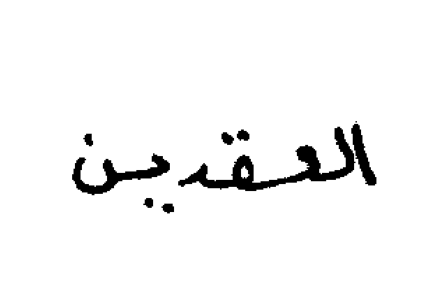 العقدين